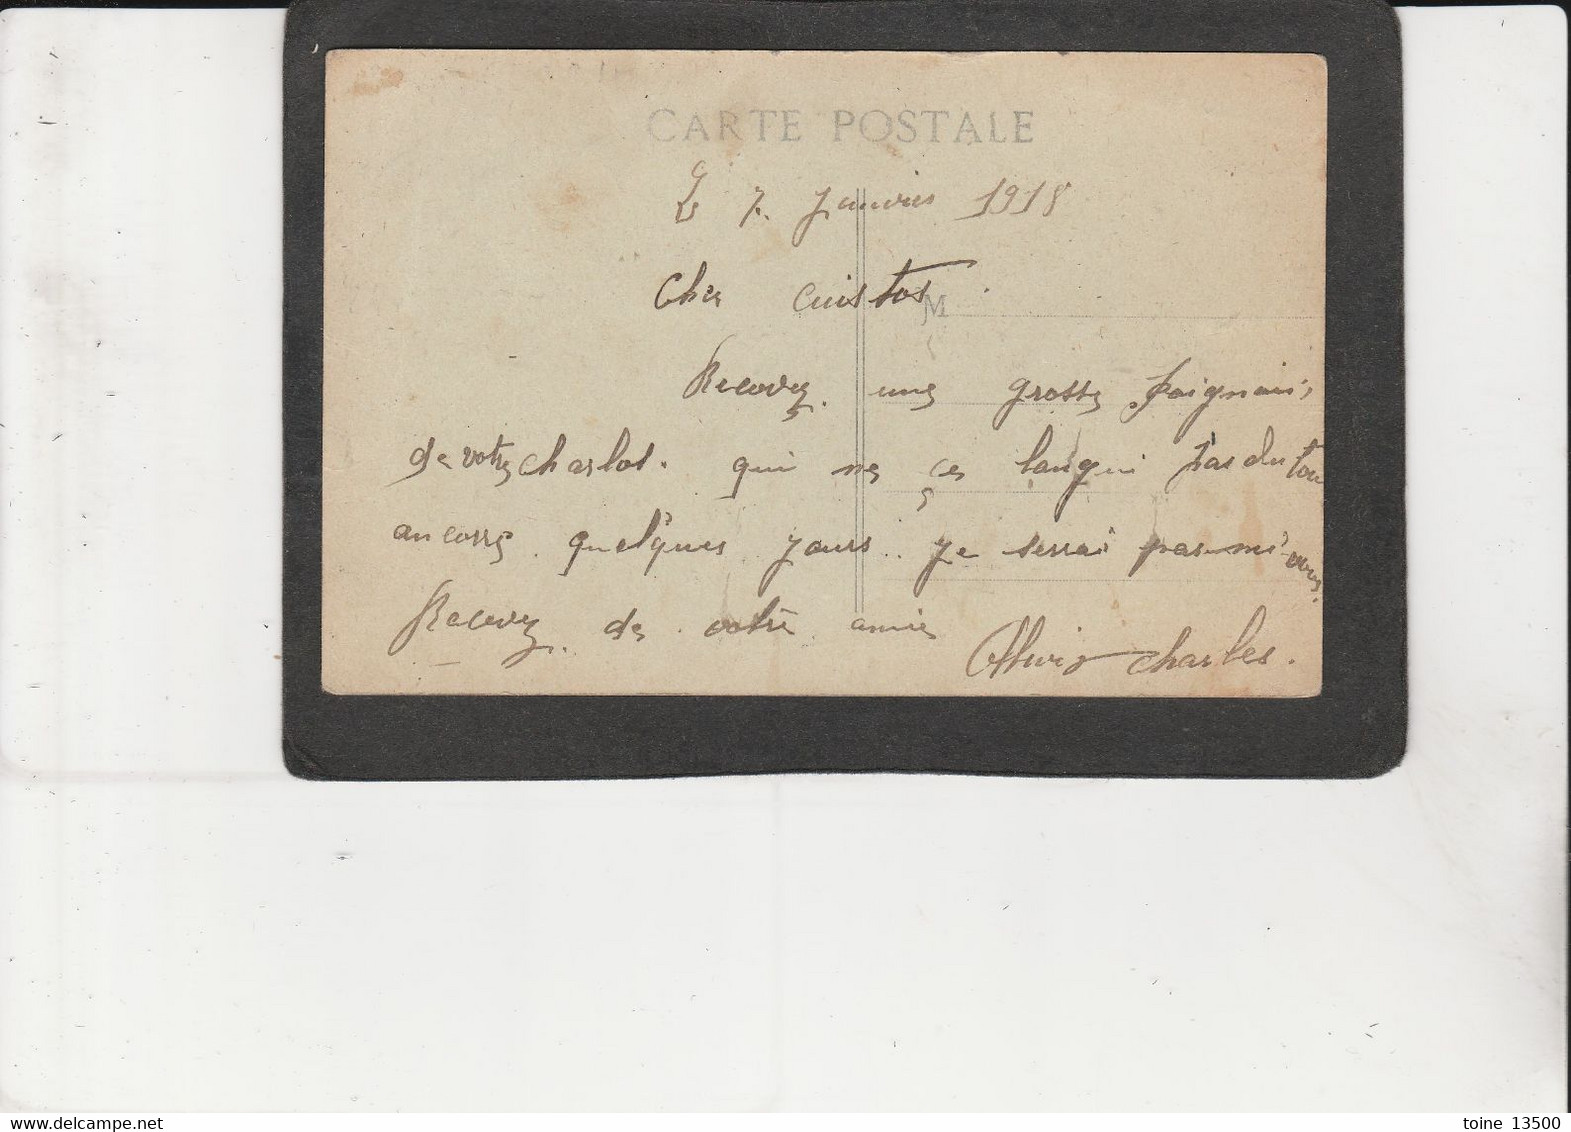 CARTE POSTALE
Le 7. Janvier 1918
Cher cuistos.
M
Recevez. une grosse poignais
de votre charlot. qui ne ce langui pas du tou
ancorre quelques jours. je serrai parmi vous.
Recevez. de votre amie
Charles.
toine 13500